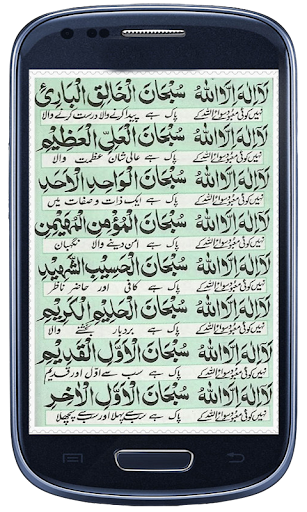 لَا اِلٰهَ اِلَّا اللهُ سُبْحَانَ الْخَالِقِ الْبَارِئِ
نہیں کوئی معبود سوائے اللہ کے پاک ہے پیدا کرنے والا درست کرنے والا
لَا اِلٰهَ اِلَّا اللهُ سُبْحَانَ الْعَلِيِّ الْعَظِيْمِ
نہیں کوئی معبود سوائے اللہ کے پاک ہے عالی شان عظمت والا
لَا اِلٰهَ اِلَّا اللهُ سُبْحَانَ الْوَاحِدِ الْاَحَدِ
نہیں کوئی معبود سوائے اللہ کے پاک ہے ایک ذات و صفات میں
لَا اِلٰهَ اِلَّا اللهُ سُبْحَانَ الْمُؤْمِنِ الْمُهَيْمِنِ
نہیں کوئی معبود سوائے اللہ کے پاک ہے امن دینے والا نگہبان
لَا اِلٰهَ اِلَّا اللهُ سُبْحَانَ الْحَسِيْبِ الشَّهِيْدِ
نہیں کوئی معبود سوائے اللہ کے پاک ہے کافی اور حاضر ناظر
لَا اِلٰهَ اِلَّا اللهُ سُبْحَانَ الْحَلِيْمِ الْكَرِيْمِ
نہیں کوئی معبود سوائے اللہ کے پاک ہے بردبار بخشنے والا
لَا اِلٰهَ اِلَّا اللهُ سُبْحَانَ الْاَوَّلِ الْقَدِيْمِ
نہیں کوئی معبود سوائے اللہ کے پاک ہے سب سے اوّل اور قدیم
لَا اِلٰهَ اِلَّا اللهُ سُبْحَانَ الْاَوَّلِ الْاٰخِرِ
نہیں کوئی معبود سوائے اللہ کے پاک ہے سب سے پہلا اور سب سے پچھلا